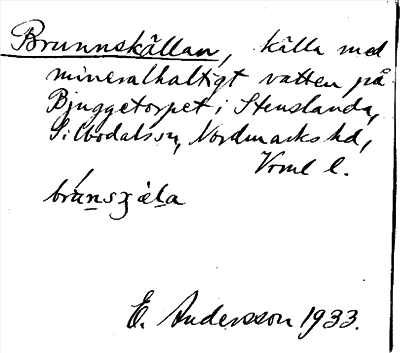 Brunnskällan, källa med
mineralhaltigt vatten på
Bjuggetorpet i Stenslanda,
Silbodalssn, Nordmarks hd,
Vrml l.
E. Andersson 1933.